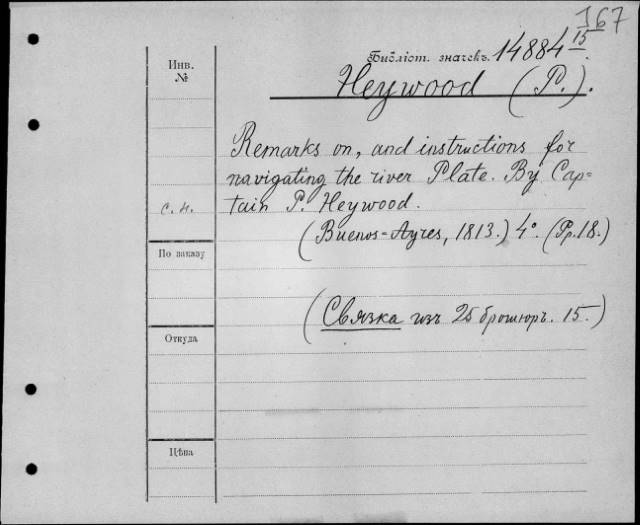 167
Инв.
№
Библіот. значекъ. 14884 15
Heywood (P.).
Remarks on, and instructions for
navigating the river Plate. By Cap=
tain P. Heywood.
с. н.
(Buenos=Ayres, 1813.) 4°. (Pp. 18.)
По заказу
(Связка изъ 25 брошюръ. 15.)
Откуда
Цѣна